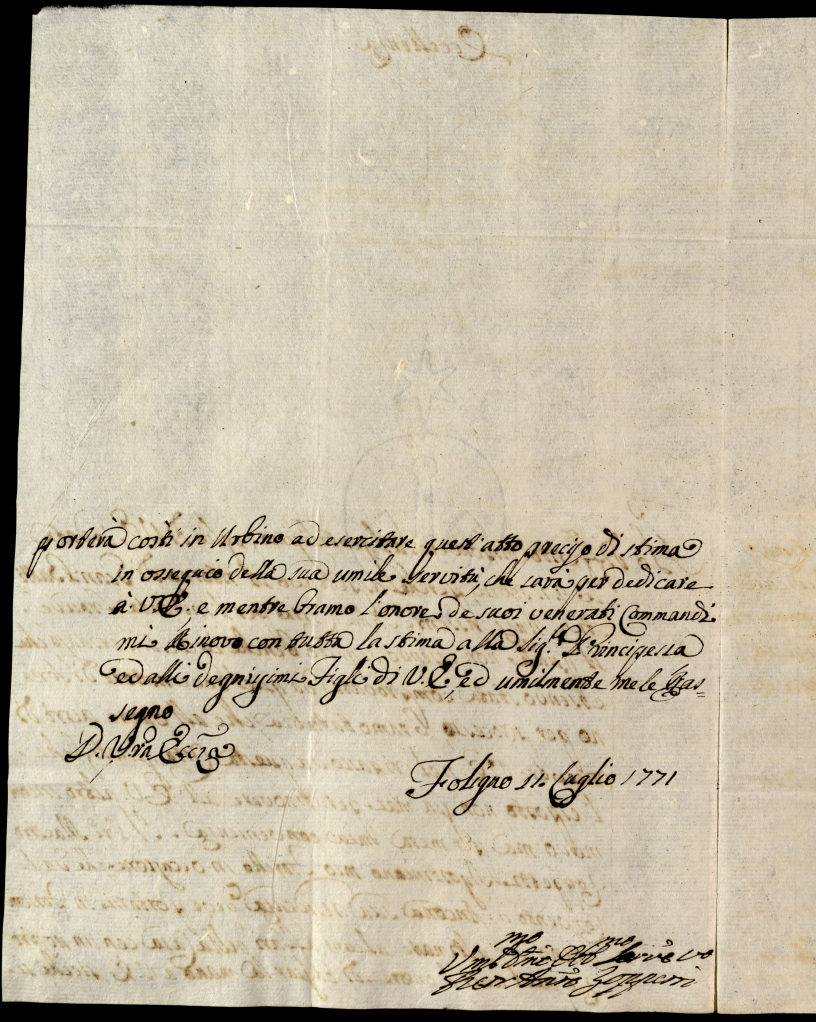 porterà costì in Urbino ad esercitare quest'atto preciso di stima
in ossequio della sua umile servitù, che sarà per dedicare
à V.E. e mentre bramo l'onore de suoi venerati Commandi
mi rinovo con tutta la stima alla Sig.ra Principessa
ed alli degnissimi Figli di V.E., ed umilmente me le Ras=
segno
D. V.ra Ecc.za
Foligno 11. Luglio 1771
Um.mo Obb.mo